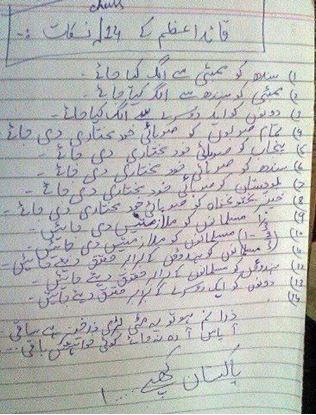 قائداعظم کے 14 نکات :-
1) سندھ کو ممبئی سے الگ کیا جائے -
2) ممبئی کو سندھ سے الگ کیا جائے -
3) دونوں کو ایک دوسرے سے الگ کیا جائے -
4) تمام صوبوں کو صوبائی خود مختاری دی جائے
5) پنجاب کو صوبائی خود مختاری دی جائے -
6) سندھ کو صوبائی خود مختاری دی جائے -
7) بلوچستان کو صوبائی خود مختاری دی جائے -
8) خیبر پختونخواہ کو صوبائی خود مختاری دی جائے -
9) مسلمانوں کو ملازمتیں دی جائیں -
10) مسلمانوں کو ملازمتیں دی جائیں -
11) مسلمانوں کو ہندوؤں کے برابر حقوق دیئے جائیں -
12) ہندوؤں کو مسلمانوں کے برابر حقوق دیئے جائیں -
13) دونوں کو ایک دوسرے کے برابر حقوق دیئے جائیں -
14)
ذرا نم ہو تو یہ مٹی بڑی زرخیز ہے ساقی
پاکستان کھپے ... !